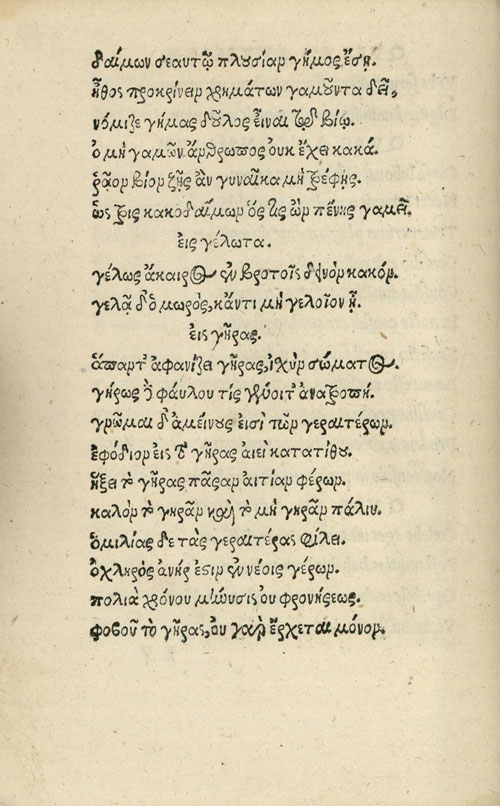 δαίμων σεαυτῷ πλουσίαν γήμας ἔσῃ.
ἦθος προκρίνειν χρημάτων γαμοῦντα δεῖ,
νόμιζε γήμας δοῦλος εἶναι τῷ βίῳ.
ὁ μὴ γαμῶν ἄνθρωπος οὐκ ἔχει κακά.
ῥᾷον βίον ζῇς ἂν γυναῖκα μὴ τρέφῃς.
ὡς τρὶς κακοδαίμων ὅς τις ὢν πένης γαμεῖ.
εἰς γέλωτα.
γέλως ἄκαιρος ἐν βροτοῖς δεινὸν κακόν.
γελᾷ δ' ὁ μωρὸς, κἄν τι μὴ γελοῖον ᾖ.
εἰς γῆρας.
ἅπαντ' ἀφανίζει γῆρας, ἰσχὺν σώματος.
γήρως δὲ φαύλου τίς γένοιτ' ἂν ἐκτροπή.
γνῶμαι δ' ἀμείνους εἰσὶ τῶν γεραιτέρων.
ἐφόδιον εἰς τὸ γῆρας ἀιεὶ κατατίθου.
ἥξει τὸ γῆρας πᾶσαν αἰτίαν φέρων.
καλὸν τὸ γηρᾶν καὶ τὸ μὴ γηρᾶν πάλιν.
ὁμιλίας δὲ τὰς γεραιτέρας φίλει.
ὀχληρὸς ἀνήρ ἐστιν ἐν νέοις γέρων.
πολιὰ χρόνου μήνυσις οὐ φρονήσεως.
φοβοῦ τὸ γῆρας, οὐ γὰρ ἔρχεται μόνον.